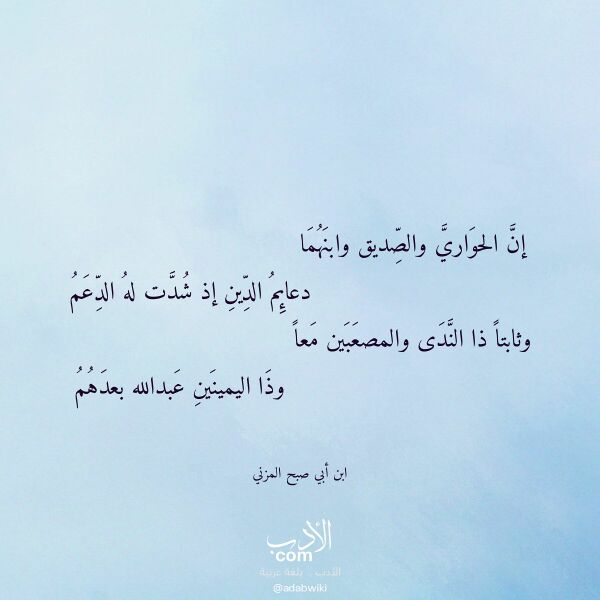 إنَّ الحوَاريَّ والصِّديق وابنَهُمَا
دعايِمُ الدِّينِ إذ شُدَّت لهُ الدِّعَمُ
وثابتاً ذا النَّدَى والمصعَبَين مَعاً
وذَا اليمينَينِ عَبدالله بعدَهُمُ
ابن أبي صبح المزني
الأدب
com
الأدب .. بلغة عربية
@adabwiki